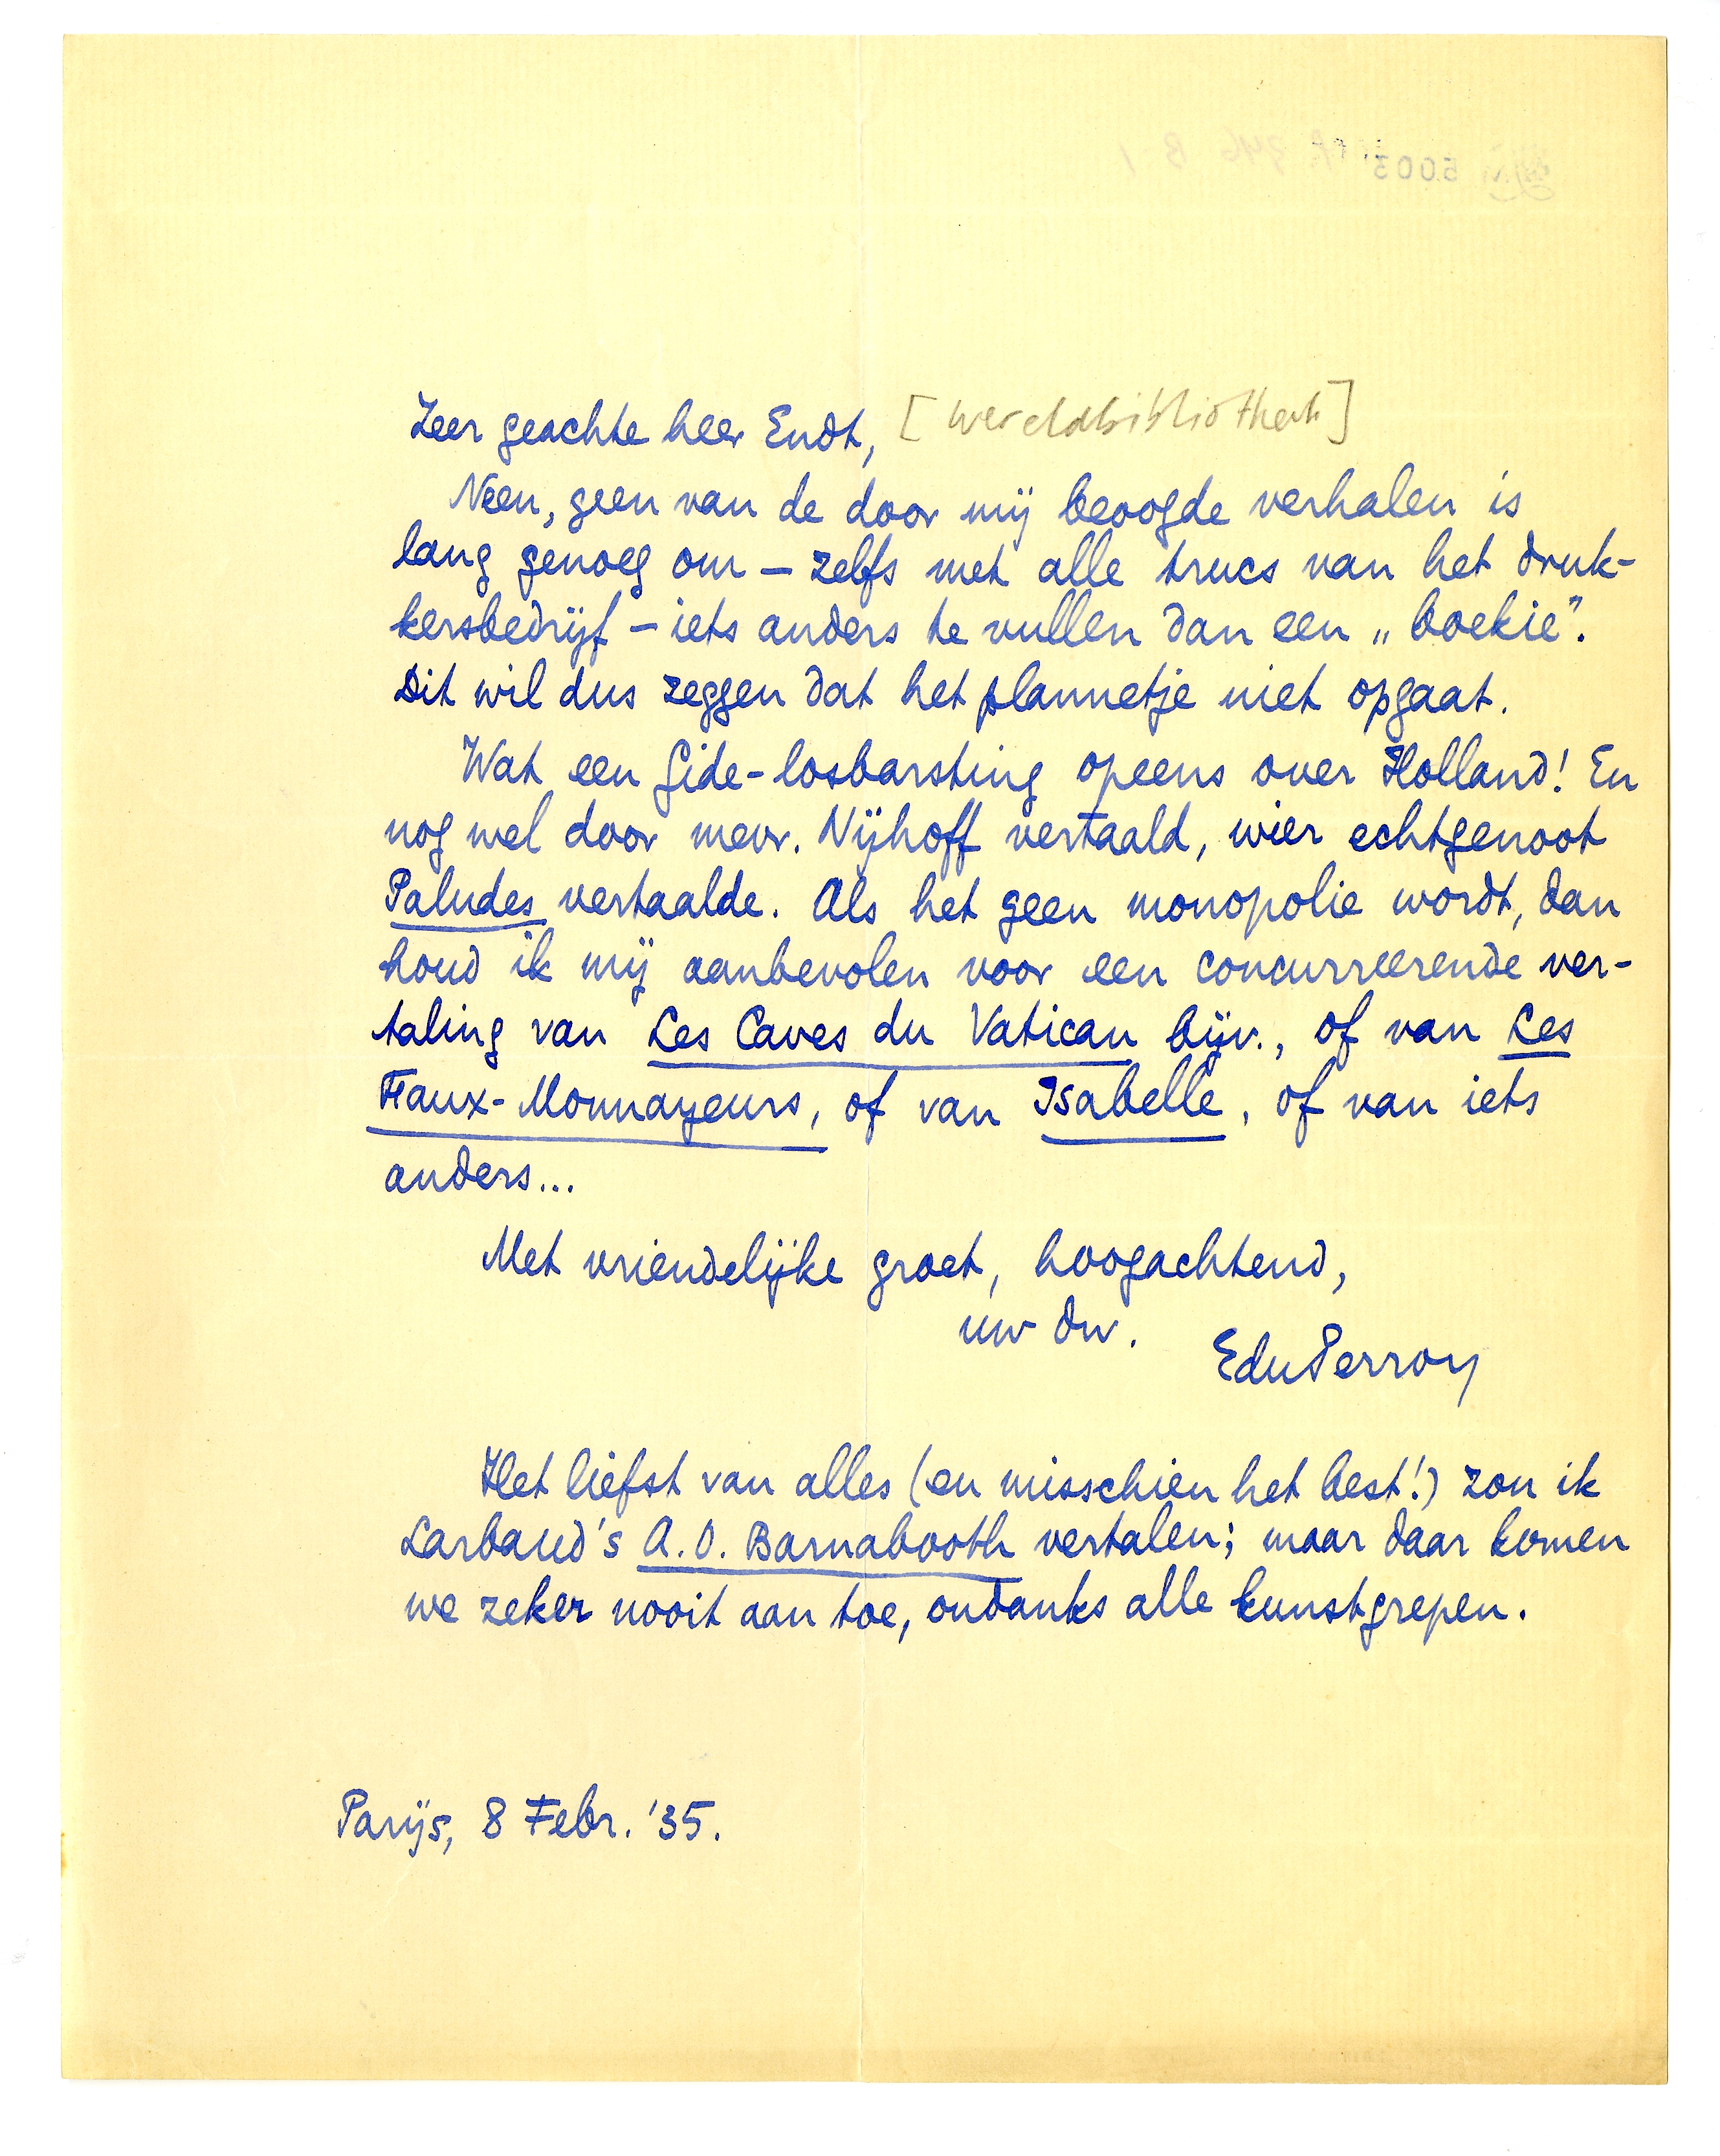 Zeer geachte heer Endt, [wereldbibliotheek]
Neen, geen van de door mij beoogde verhalen is
lang genoeg om – zelfs met alle trucs van het druk-
kersbedrijf – iets anders te vullen dan een „boekie”.
Dit wil dus zeggen dat het plannetje niet opgaat.
Wat een Gide-losbarsting opeens over Holland! En
nog wel door mevr. Nijhoff vertaald, wier echtgenoot
Paludes vertaalde. Als het geen monopolie wordt, dan
houd ik mij aanbevolen voor een concurreerende ver-
taling van Les Caves du Vatican bijv., of van Les
Faux-Monnayeurs, of van Isabelle, of van iets
anders...
Met vriendelijke groet, hoogachtend,
uw dw.
EduPerron
Het liefst van alles (en misschien het best!) zou ik
Larbaud's A.O. Barnabooth vertalen; maar daar komen
we zeker nooit aan toe, ondanks alle kunstgrepen.
Parijs, 8 Febr. '35.